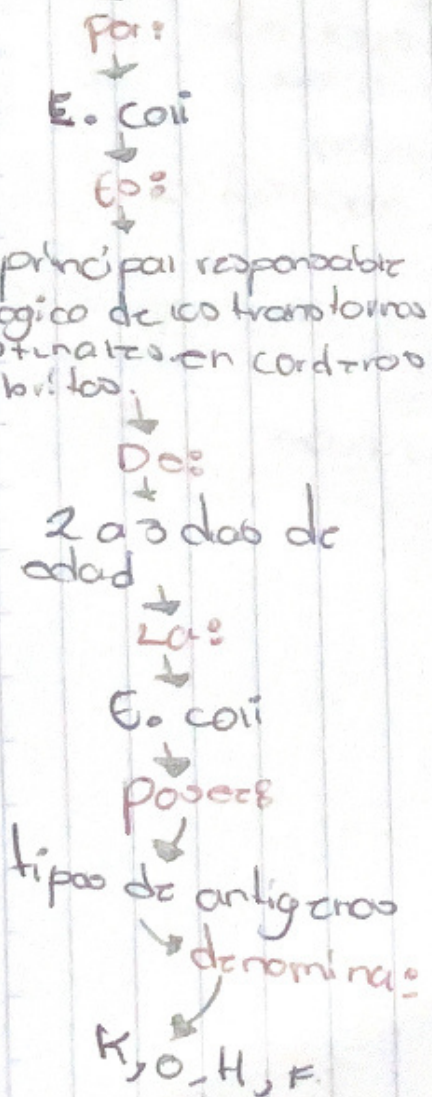 Por:
E. coli
Es:
principal responsable
ogico de los transtornos
stinales en corderos
britos.
De:
2 a 3 dias de
edad
La:
E. coli
Posee:
tipos de antigenos
denomina:
K, O, H, F